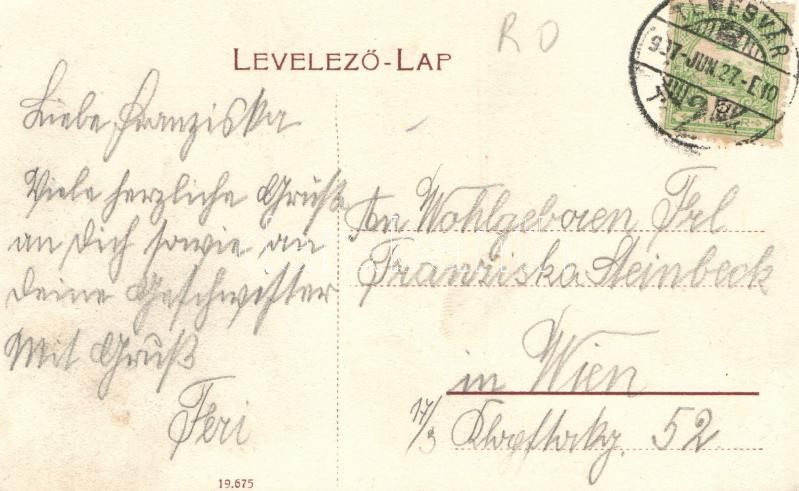 LEVELEZŐ-LAP
RO
TEMESVÁR
907-JUN.27-E10
Liebe Franziska
Viele herzliche Grüße
an Dich sowie an
deine Geschwister
Mit Gruß
Feri
An Wohlgeboren Frl
Franziska Steinbeck
in Wien
17/3 52
19.675